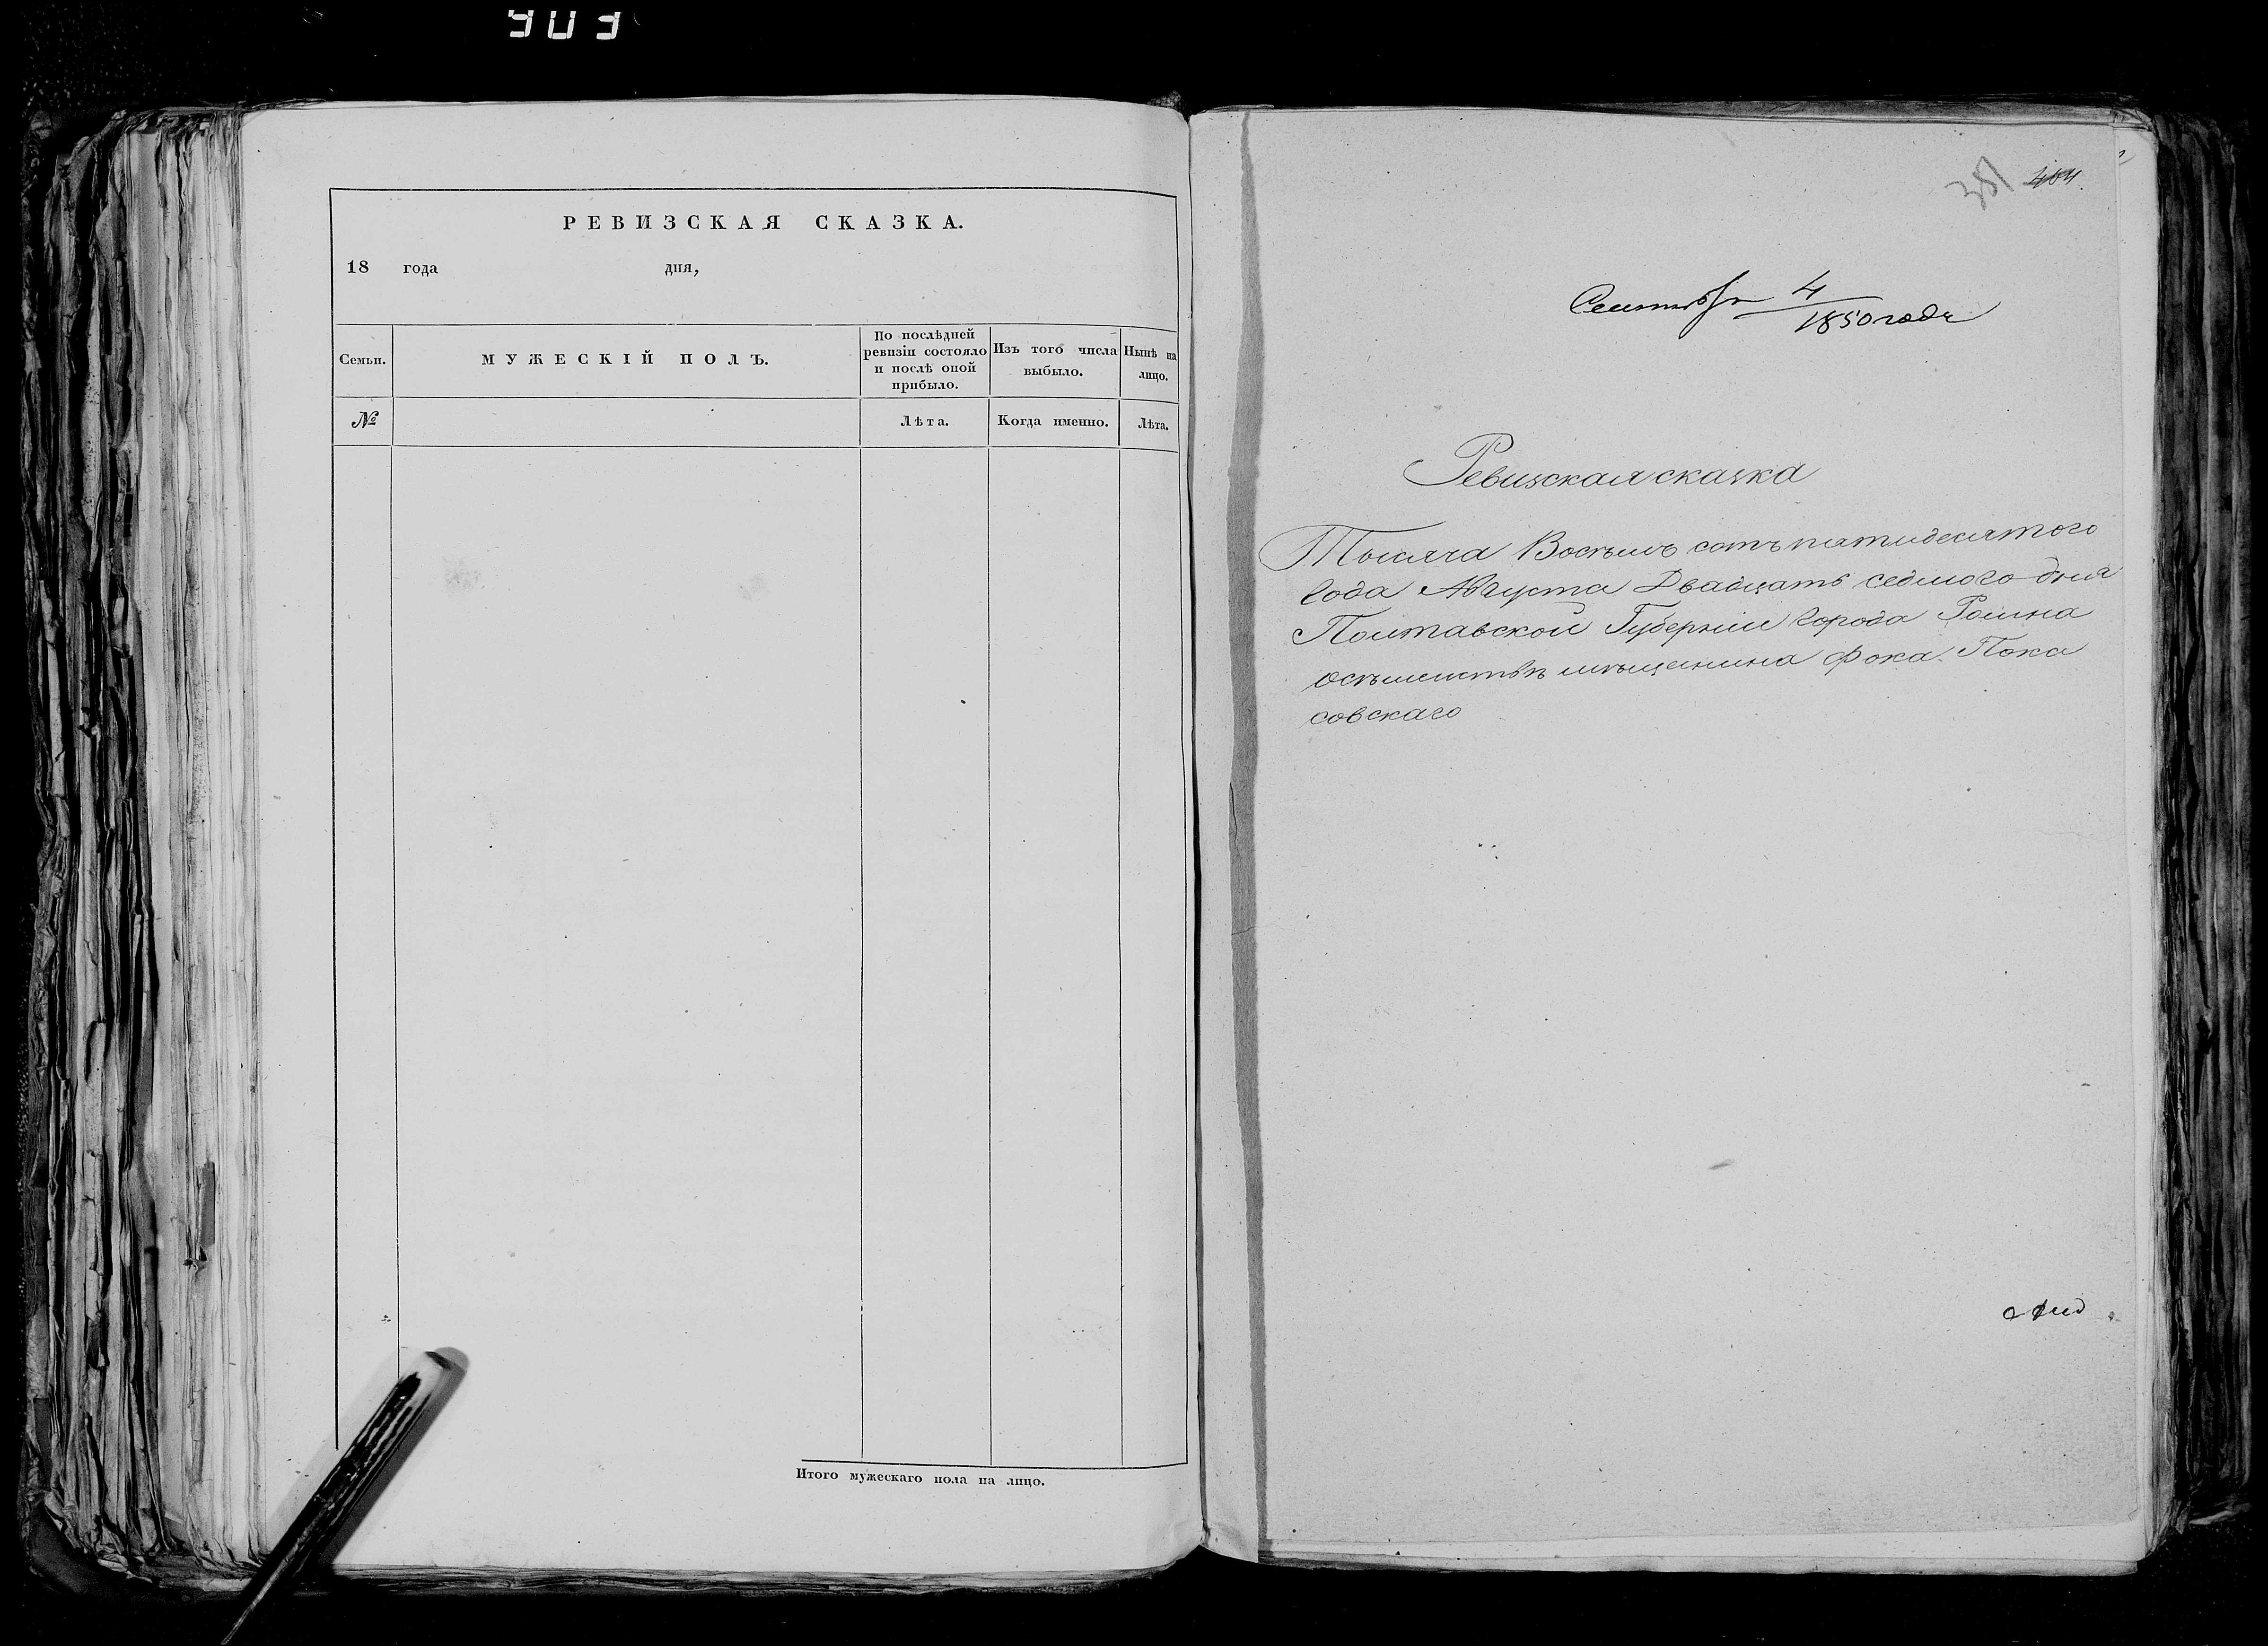 903
РЕВИЗСКАЯ СКАЗКА.
18 года дня,
Семьи.
МУЖЕСКІЙ ПОЛЪ.
По послѣдней
ревизіи состояло
и послѣ оной
прибыло.
Изъ того числа
выбыло.
Нынѣ на
лицо.
№
Лѣта.
Когда именно.
Лѣта.
Итого мужескаго пола на лицо.
381 404
Сентября 4
1850 года
Ревизская сказка
Тысяча Восемь сотъ пятидесятого
Года Августа Двадцать седмого дня
Полтавской Губерніи города Ромна
о мѣщанина Фока Пока
совскаго